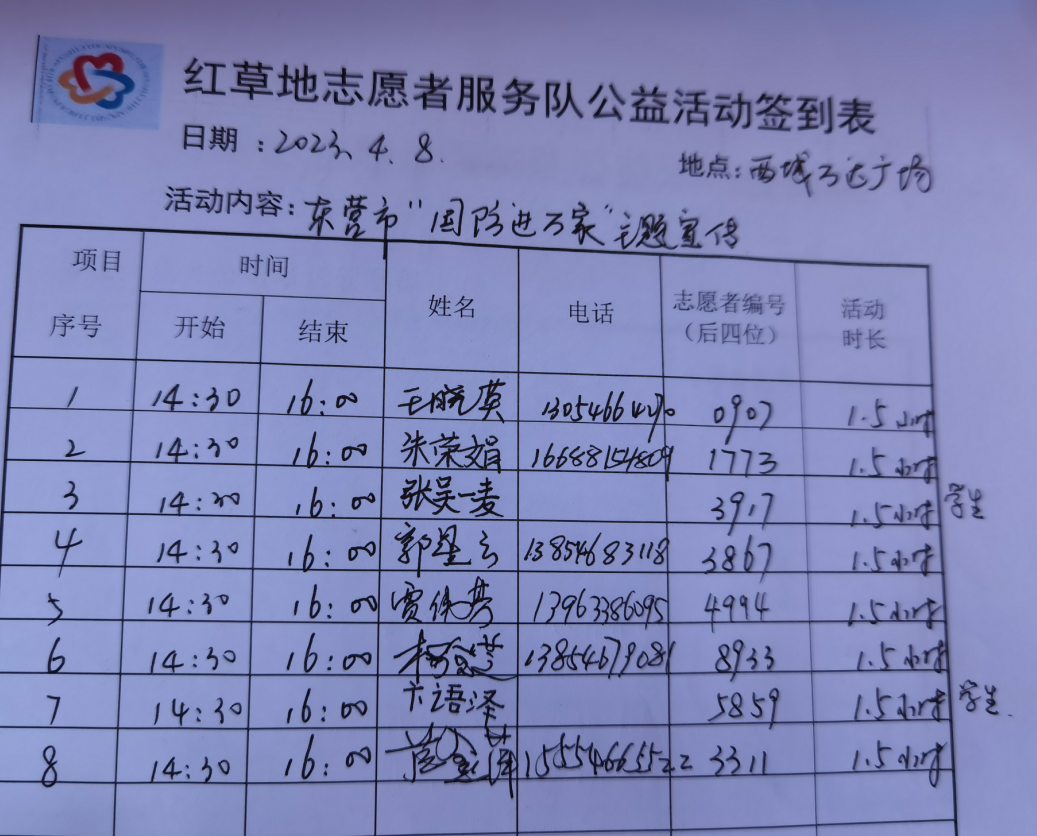 红草地志愿者服务队公益活动签到表
日期：2023.4.8.
地点：西城万达广场
活动内容：东营市“国防进万家”主题宣传
项目 时间 姓名 电话 志愿者编号（后四位） 活动时长
序号 开始 结束
1 14:30 16:00 王晓英 0907 1.5小时
2 14:30 16:00 朱荣娟 16688154809 1773 1.5小时
3 14:30 16:00 张吴一麦 3917 1.5小时 学生
4 14:30 16:00 郭星云 13854683118 3867 1.5小时
5 14:30 16:00 贾 13963386095 4994 1.5小时
6 14:30 16:00 13854679081 8933 1.5小时
7 14:30 16:00 卞语泽 5859 1.5小时 学生.
8 14:30 16:00 15554665522 3311 1.5小时